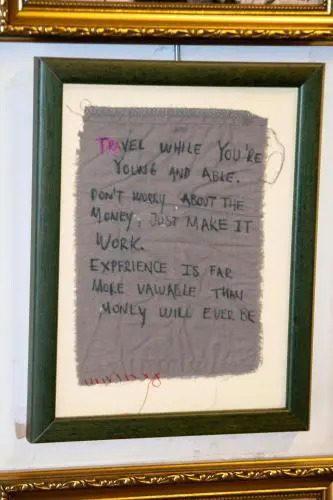 TRAVEL WHILE YOU'RE
YOUNG AND ABLE.
DON'T WORRY ABOUT THE
MONEY, JUST MAKE IT
WORK.
EXPERIENCE IS FAR
MORE VALUABLE THAN
MONEY WILL EVER BE